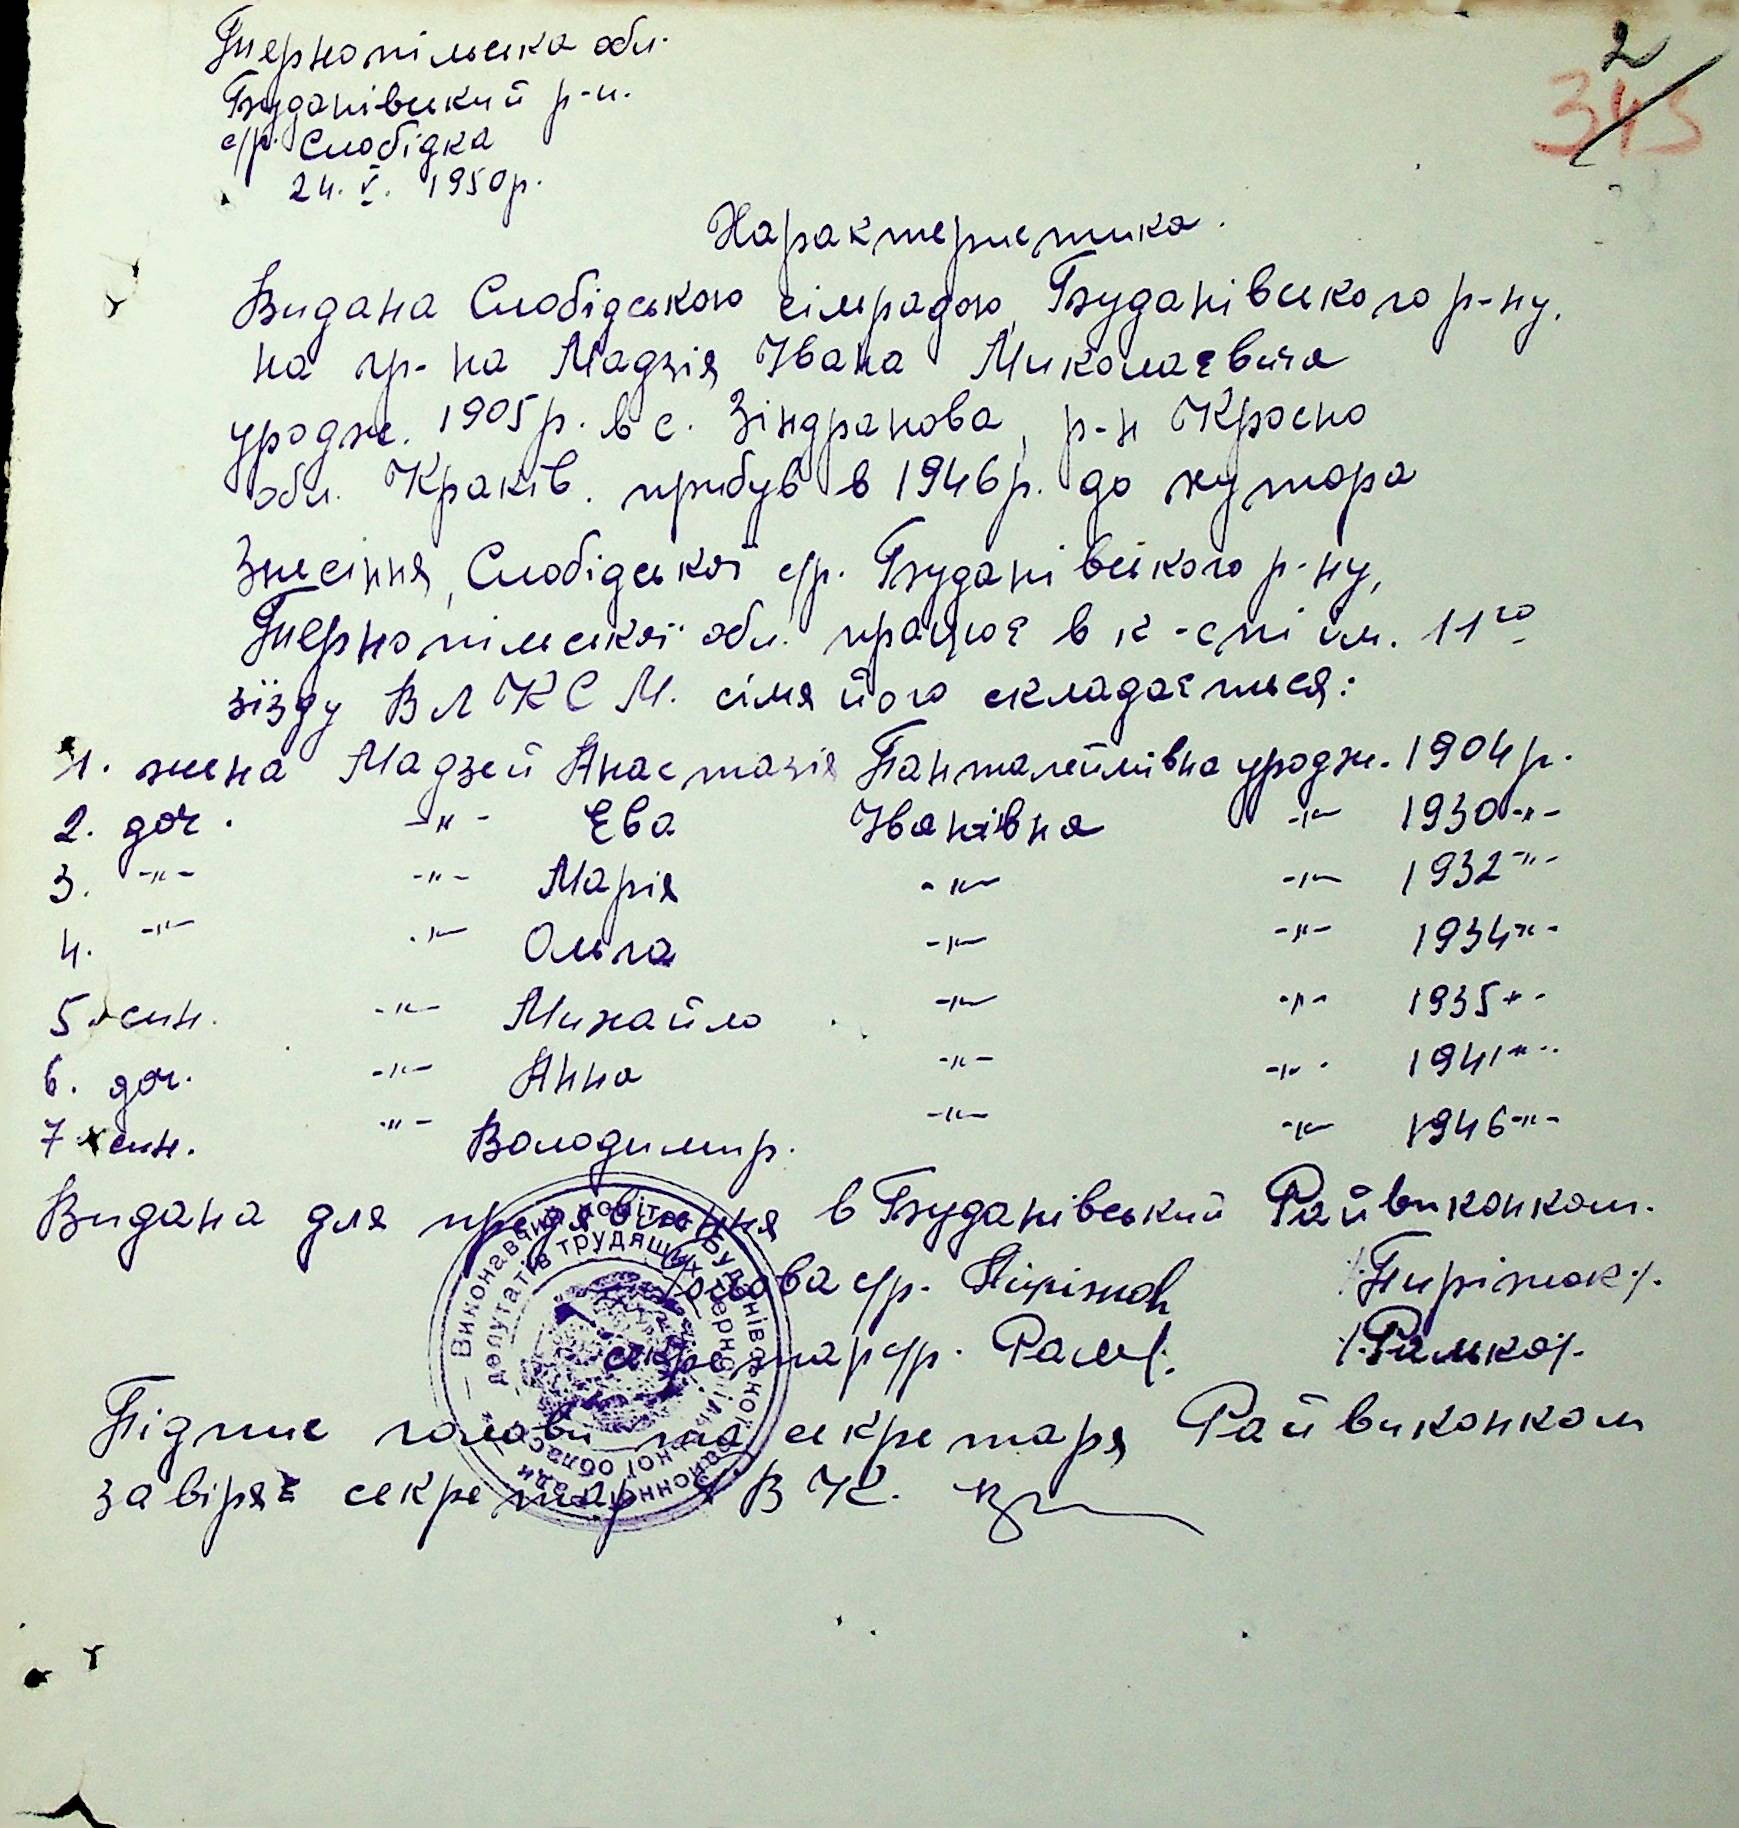 2
343
Тернопільська обл.
Буданівський р-н.
с/р. Слобідка
24. V. 1950р.
Характеристика.
Видана Слобідською сільрадою, Буданівського р-ну,
на гр-на Мадзія Івана Миколаєвича
уродж. 1905р. в с. Зіндранова, р-н Кросно
обл. Краків. прибув в 1946р. до хутора
Знесіння, Слобідської с/р. Буданівського р-ну,
Тернопільської обл. працює в к-спі ім. 11го
зїзду ВЛКСМ. сімя його складається:
1. жена Мадзей Анастазія Панталеймівна уродж. 1904р.
2. доч. -"- Ева Іванівна -"- 1930 -"-
3. -"- -"- Марія -"- -"- 1932 -"-
4. -"- -"- Ольга -"- -"- 1934 -"-
5. син. -"- Михайло -"- -"- 1935 -"-
6. доч. -"- Анна -"- -"- 1941 -"-
7 син. -"- Володимир. -"- -"- 1946 -"-
Видана для предявлення в Буданівський Райвиконком.
Голова с/р. /Пиріжок/.
секретар с/р. /Ралько/.
Підпис голови та секретаря Райвиконком
завіряє секретар РВК.
Виконавчий комітет Буданівської районної ради
депутатів трудящих Тернопільської області